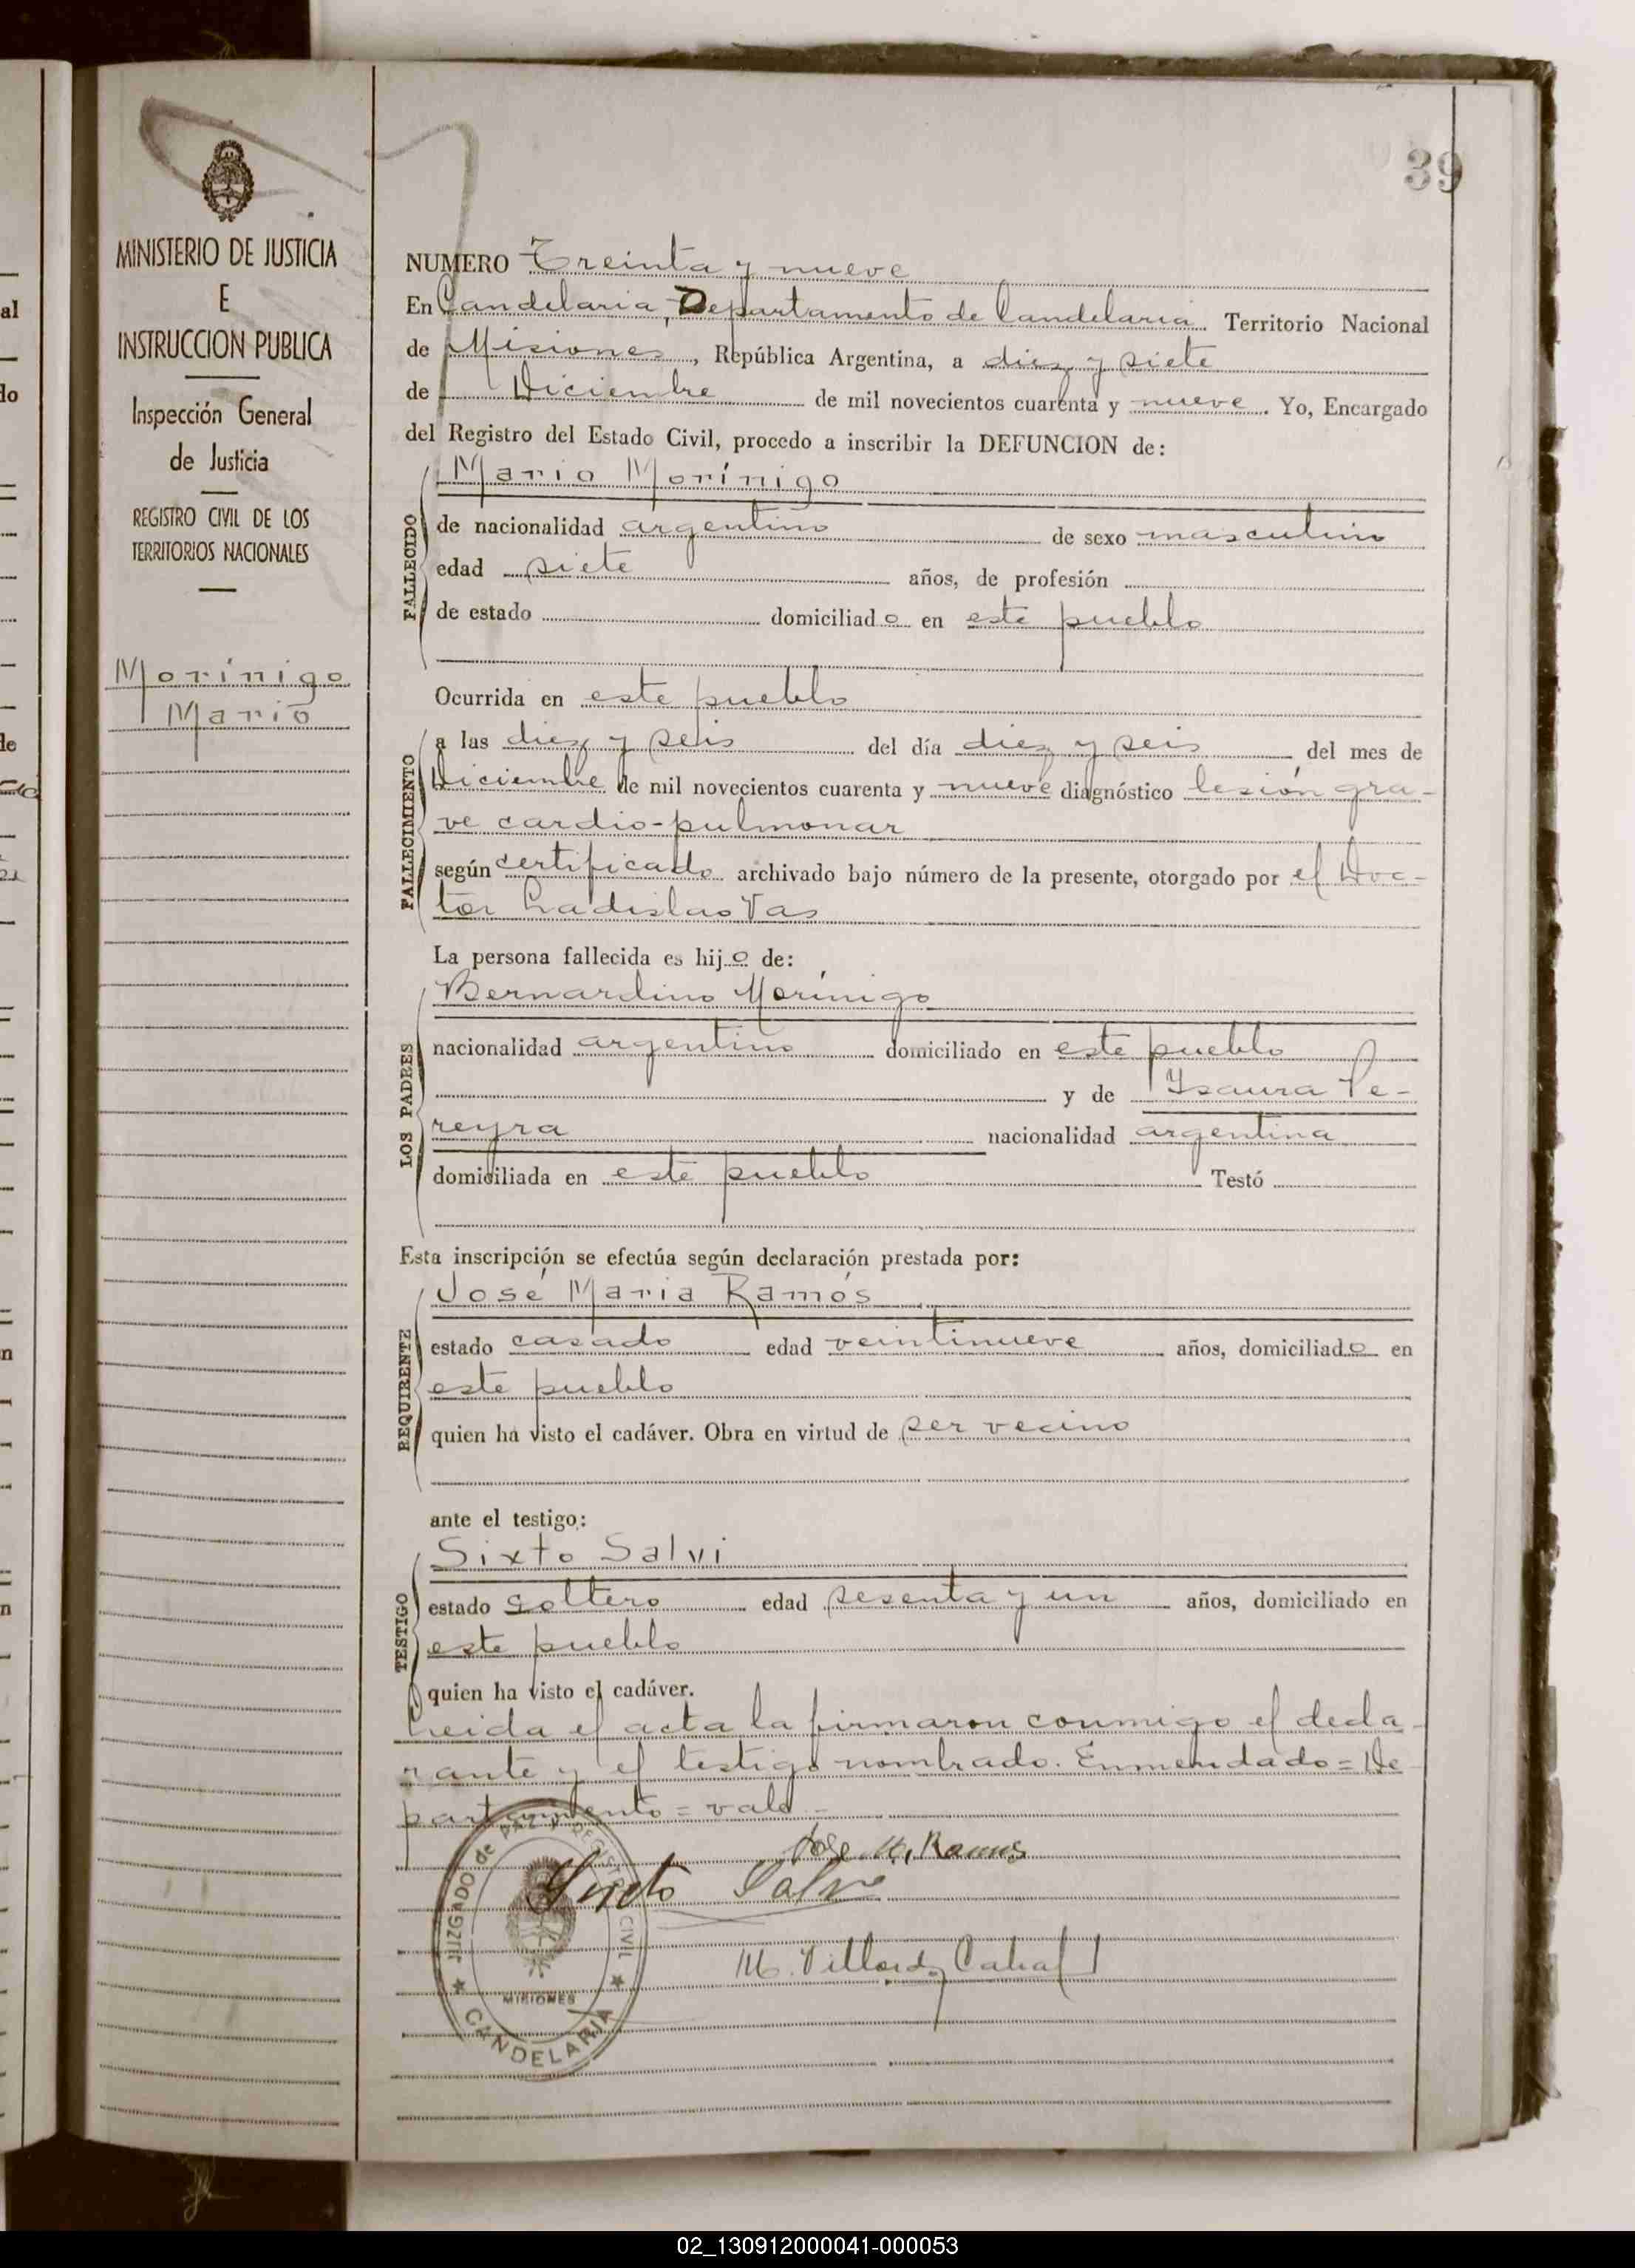 39
MINISTERIO DE JUSTICIA
E
INSTRUCCION PUBLICA
Inspección General
de Justicia
REGISTRO CIVIL DE LOS
TERRITORIOS NACIONALES
Morínigo
Mario
NUMERO Treinta y nueve
En Candelaria, Departamento de Candelaria Territorio Nacional
de Misiones, República Argentina, a diez y siete
de Diciembre de mil novecientos cuarenta y nueve. Yo, Encargado
del Registro del Estado Civil, procedo a inscribir la DEFUNCION de:
Mario Morínigo
FALLECIDO
de nacionalidad argentino de sexo masculino
edad siete años, de profesión
de estado domiciliado en este pueblo
Ocurrida en este pueblo
FALLECIMIENTO
a las diez y seis del día diez y seis del mes de
Diciembre de mil novecientos cuarenta y nueve diagnóstico lesión gra-
ve cardio-pulmonar
según certificado archivado bajo número de la presente, otorgado por el Doc-
tor Ladislao Vas
La persona fallecida es hijo de:
LOS PADRES
Bernardino Morínigo
nacionalidad argentino domiciliado en este pueblo
y de Ysaura Pe-
reyra nacionalidad argentina
domiciliada en este pueblo Testó
Esta inscripción se efectúa según declaración prestada por:
REQUIRENTE
José María Ramós
estado casado edad veintinueve años, domiciliado en
este pueblo
quien ha visto el cadáver. Obra en virtud de ser vecino
ante el testigo:
TESTIGO
Sixto Salvi
estado soltero edad sesenta y un años, domiciliado en
este pueblo
quien ha visto el cadáver.
Leida el acta la firmaron conmigo el decla-
rante y el testigo nombrado. Enmendado = De
partamento = vale.-
José M. Ramos
Sixto Salvi
JUZGADO de PAZ y REGISTRO CIVIL
MISIONES
CANDELARIA
02_130912000041-000053